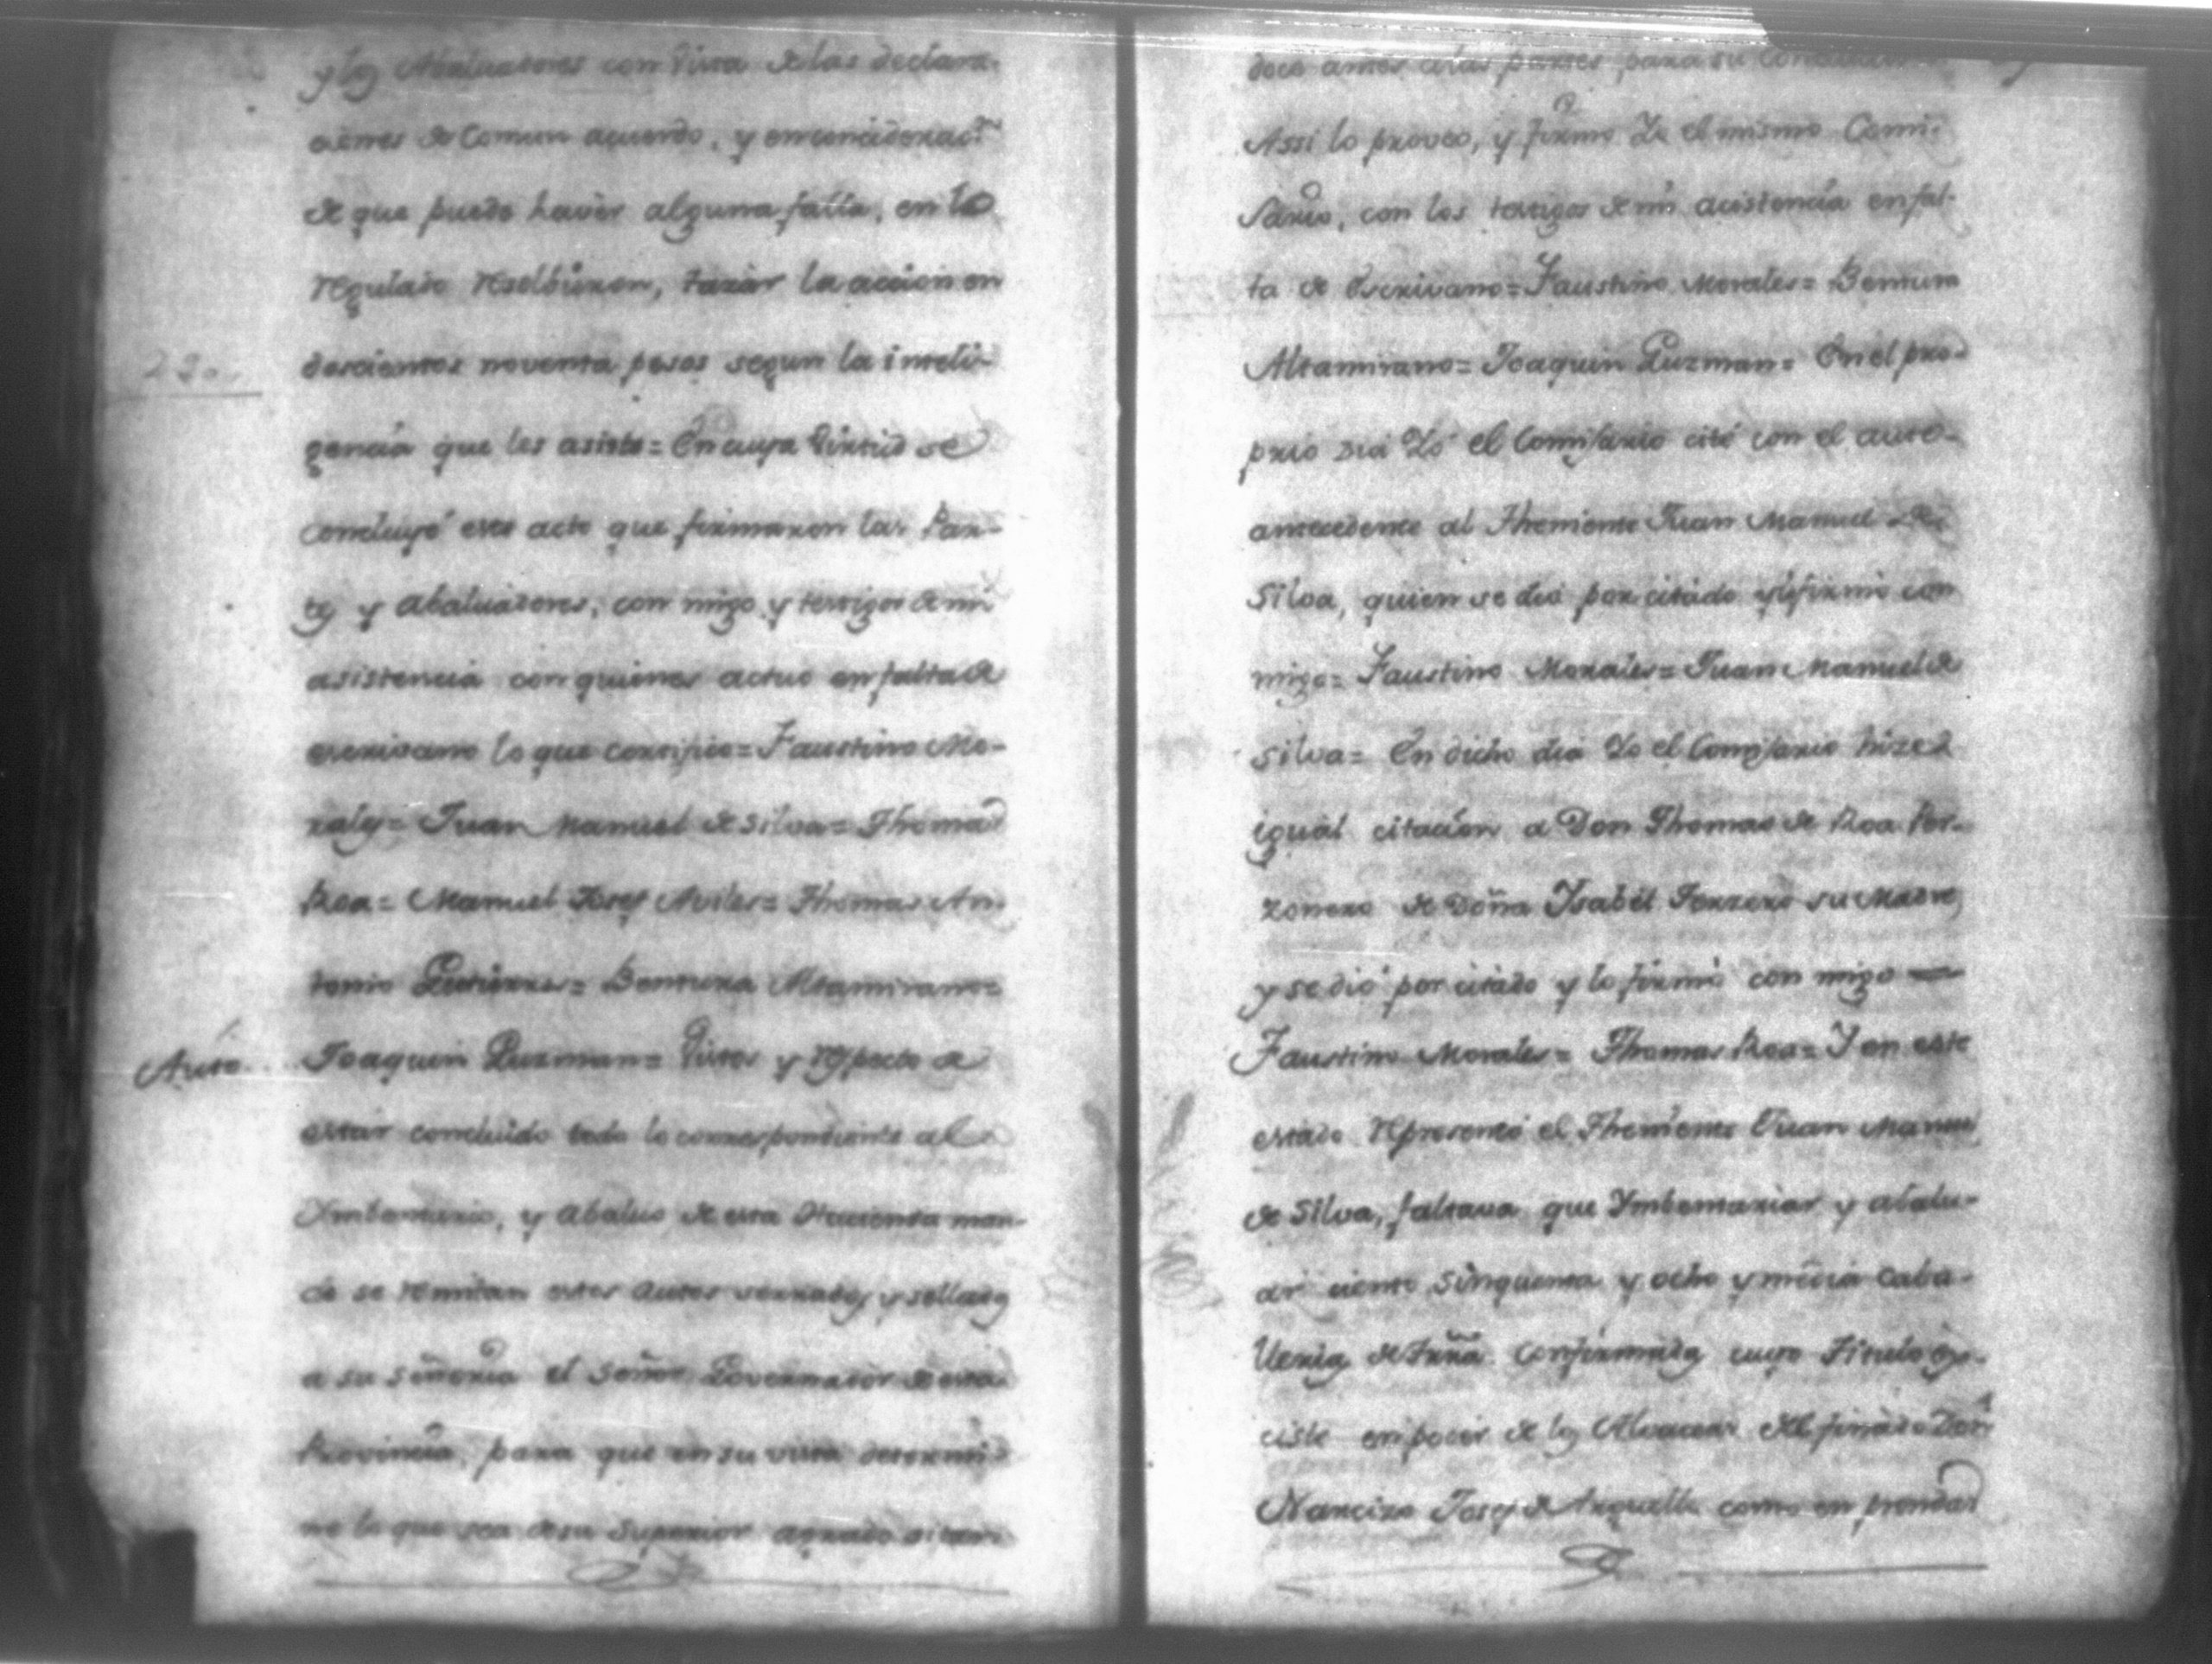 y los Abaluadores con Vista de las declara-
ciones de Comun acuerdo, y en concideracn
de que puede haver alguna falta, en lo
regulado resolbieron, tazar la accion en
290„
doscientos noventa pesos segun la inteli-
gencia que les asiste= En cuya Virtud se
concluyó este acto que firmaron las Par-
tes y Abaluadores, con migo y testigos de mi
asistencia con quienes actuo en falta de
escrivano lo que certifico= Faustino Mo-
rales= Juan Manuel de Silva= Thomas
Roa= Manuel Josef Aviles= Thomas An-
tonio Gutierres= Bentura Altamirano=
Auto.
Joaquin Guzman= Vistos y respecto de
estar concluido todo lo correspondiente al
Ymbentario, y Abaluo de esta Hacienda man-
do se remitan estos autos serrados y sellados
a su Señoria el Señor Governador de esta
Provincia, para que en su vista determi-
ne lo que sea de su Superior agrado
doce antes a las partes para su
Assi lo proveo, y firmo Yo el mismo Comi-
sario, con los testigos de mi asistencia en fal-
ta de Escrivano= Faustino Morales= Bentura
Altamirano= Joaquin Guzman= En el pro-
prio dia Yo el Comisario cité con el auto
antecedente al Theniente Juan Manuel de
Silva, quien se dió por citado y lo firmó con
migo= Faustino Morales= Juan Manuel de
Silva= En dicho dia Yo el Comisario hize
igual citacion a Don Thomas de Roa Per-
zonero de Doña Ysabel Ferrera su Madre,
y se dió por citado y lo firmó con migo
Faustino Morales= Thomas Roa= Y en este
estado represento el Theniente Juan Manuel
de Silva, faltava que Ymbentariar y abalu-
ar ciento sinquenta y ocho y media caba-
llerias de trra confirmadas cuyo Titulo ex-
ciste en poder de los Alvaceas del finado Don
Narcizo Josef de Arguelle como en prendas